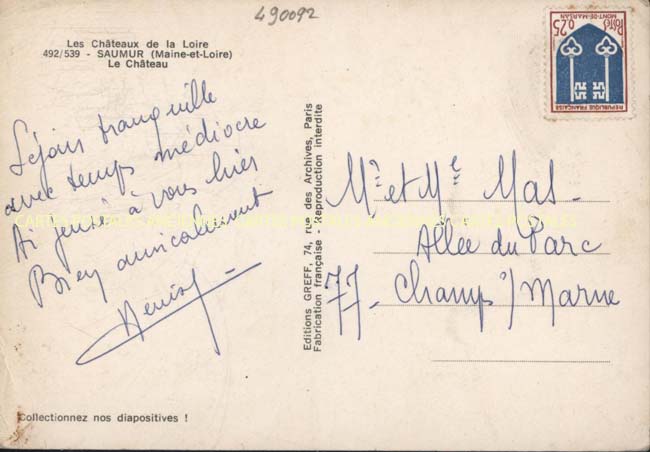 490092
Les Châteaux de la Loire
492/539 - SAUMUR (Maine-et-Loire)
Le Château
Séjour tranquille
avec temps médiocre
Ai pensé à vous hier
Bien amicalement
Editions GREFF, 74, rue des Archives, Paris
Fabrication française - Reproduction interdite
0,25 Postes
MONT-DE-MARSAN
REPUBLIQUE FRANÇAISE
Mr et Me Mas.
Allée du Parc
77. Champs s/ Marne
Collectionnez nos diapositives !